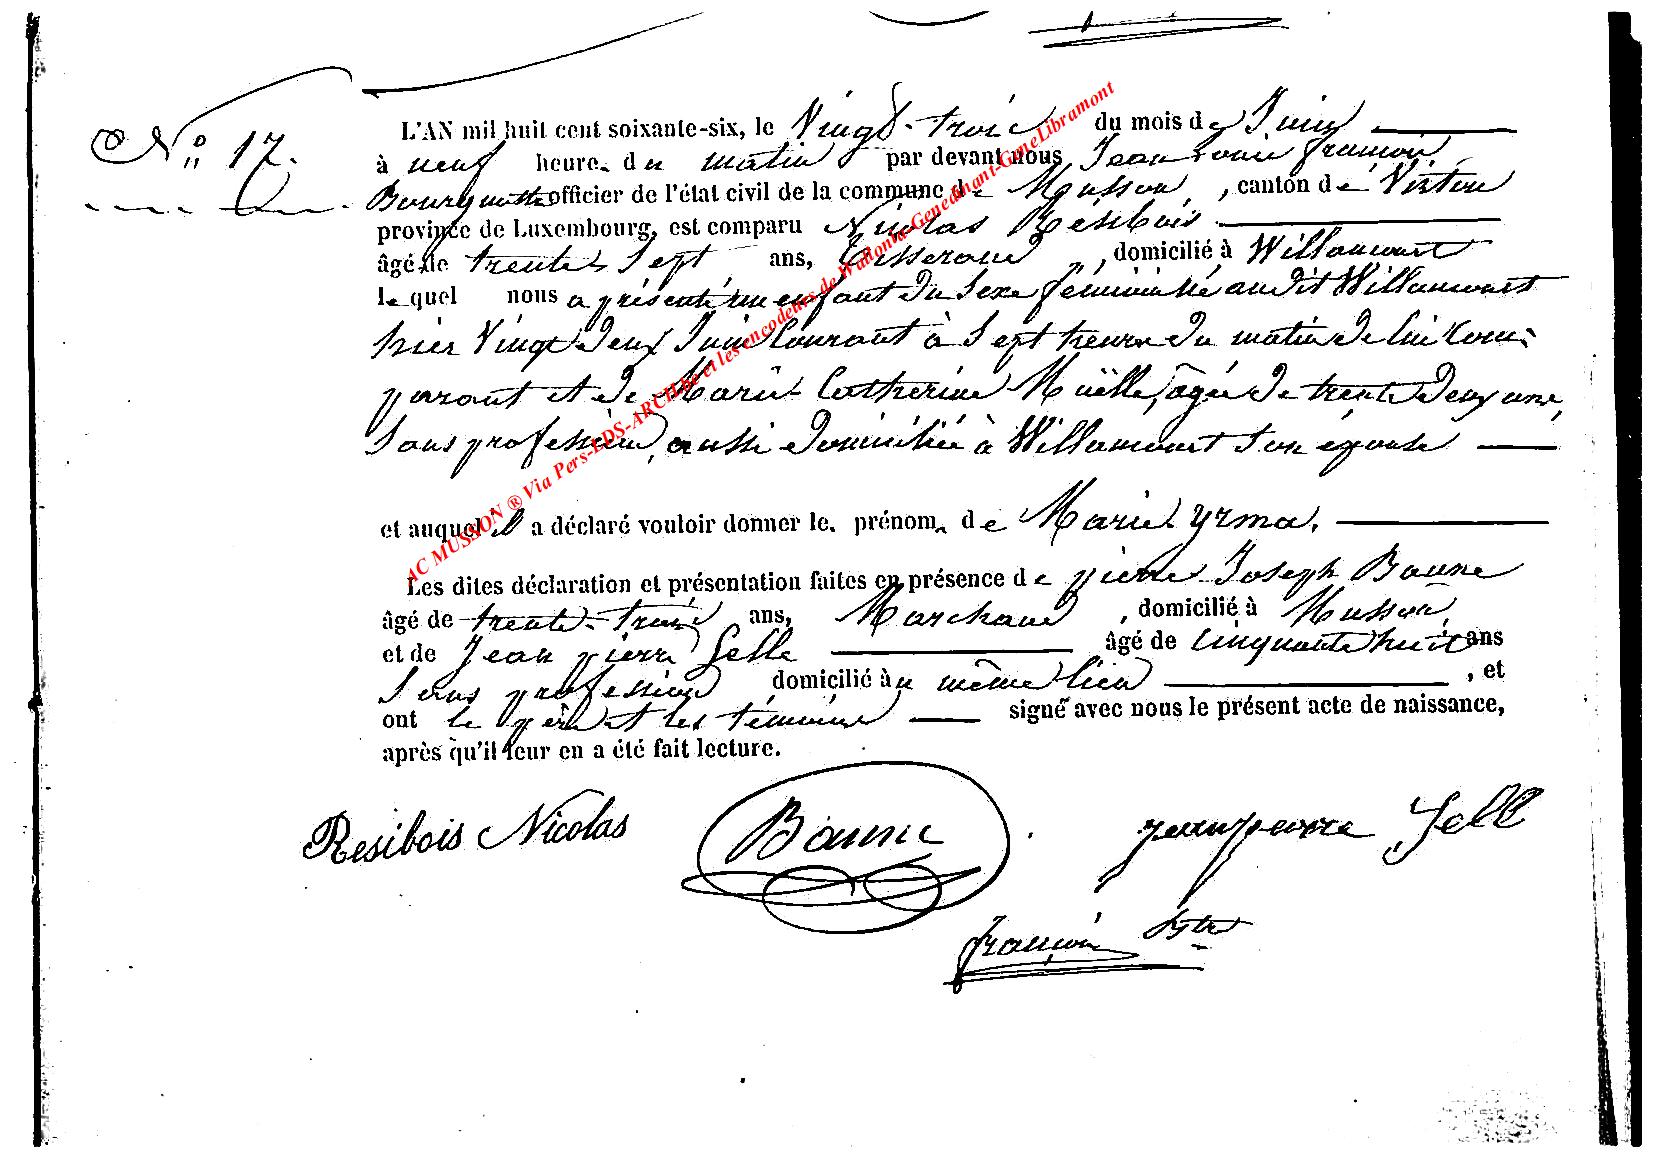 N° 17.
L'AN mil huit cent soixante-six, le Vingt-trois du mois de Juin
à neuf heure. du matin par devant nous Jean françois
officier de l'état civil de la commune de Musson, canton de Virton
province de Luxembourg, est comparu Nicolas Résibois
âgé de trente-sept ans, tisserand, domicilié à Willancourt
le quel nous a présenté un enfant du Sexe féminin né audit Willancourt
hier Vingt deux Juin Courant à Sept heures du matin de lui Com-
parant et de Marie-Catherine Muëlle, âgée de trente deux ans,
Sans profession, aussi domiciliée à Willancourt son épouse
et auquel il a déclaré vouloir donner le. prénom. de Marie-Yrma.
Les dites déclaration et présentation faites en présence de pierre Joseph Baune
âgé de trente-trois ans, Marchand, domicilié à Musson,
et de Jean pierre Selle âgé de Cinquante huit ans
Sans profession domicilié au même lieu, et
ont le père et les témoins signé avec nous le présent acte de naissance,
après qu'il leur en a été fait lecture.
Resibois Nicolas Baune jeanpierre Sell
françois
AC MUSSON ® Via Pers-EDS-ARCH.be et les encodeurs de Wallonia-Genedinant-GeneLibramont